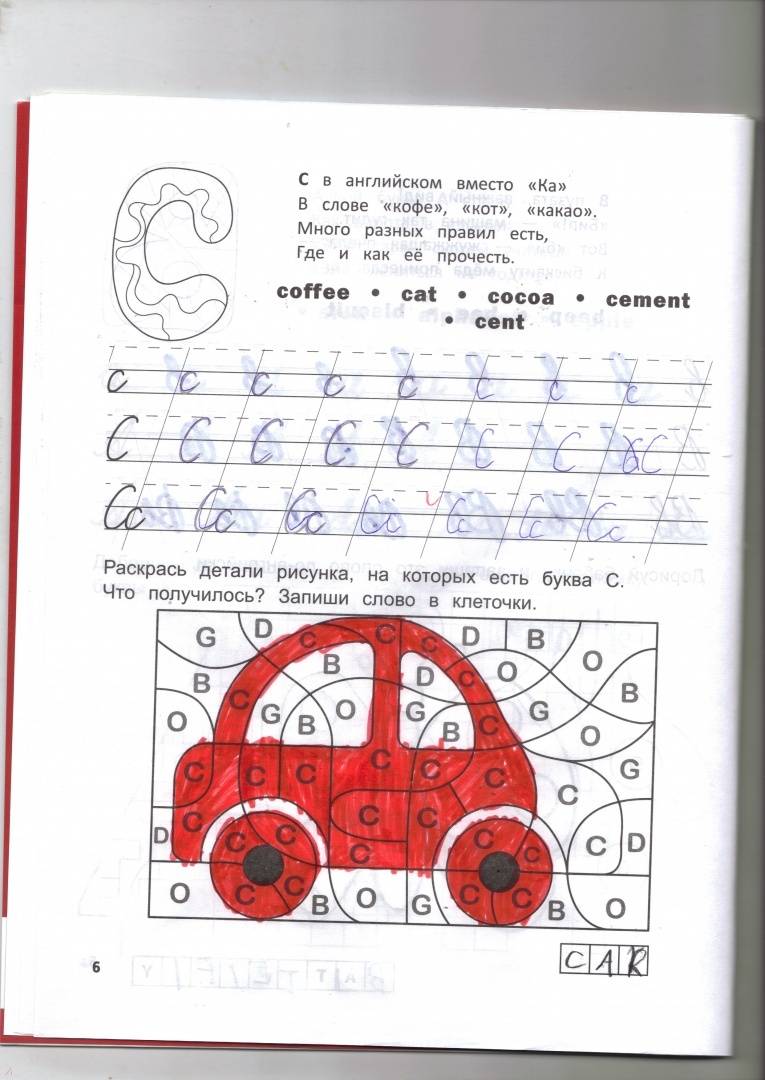 С в английском вместо «Ка»
В слове «кофе», «кот», «какао».
Много разных правил есть,
Где и как её прочесть.
coffee • cat • cocoa • cement
• cent
c c c c c c c c
C C C C C C C C
Cc Cc Cc Cc Cc Cc Cc
Раскрась детали рисунка, на которых есть буква С.
Что получилось? Запиши слово в клеточки.
G D C C C D B O
B B D C O B
O C G B O G B C G O
C C C C C C G
C C C
D C C C C C C C D
O C C B O G C C B O
6 CAR